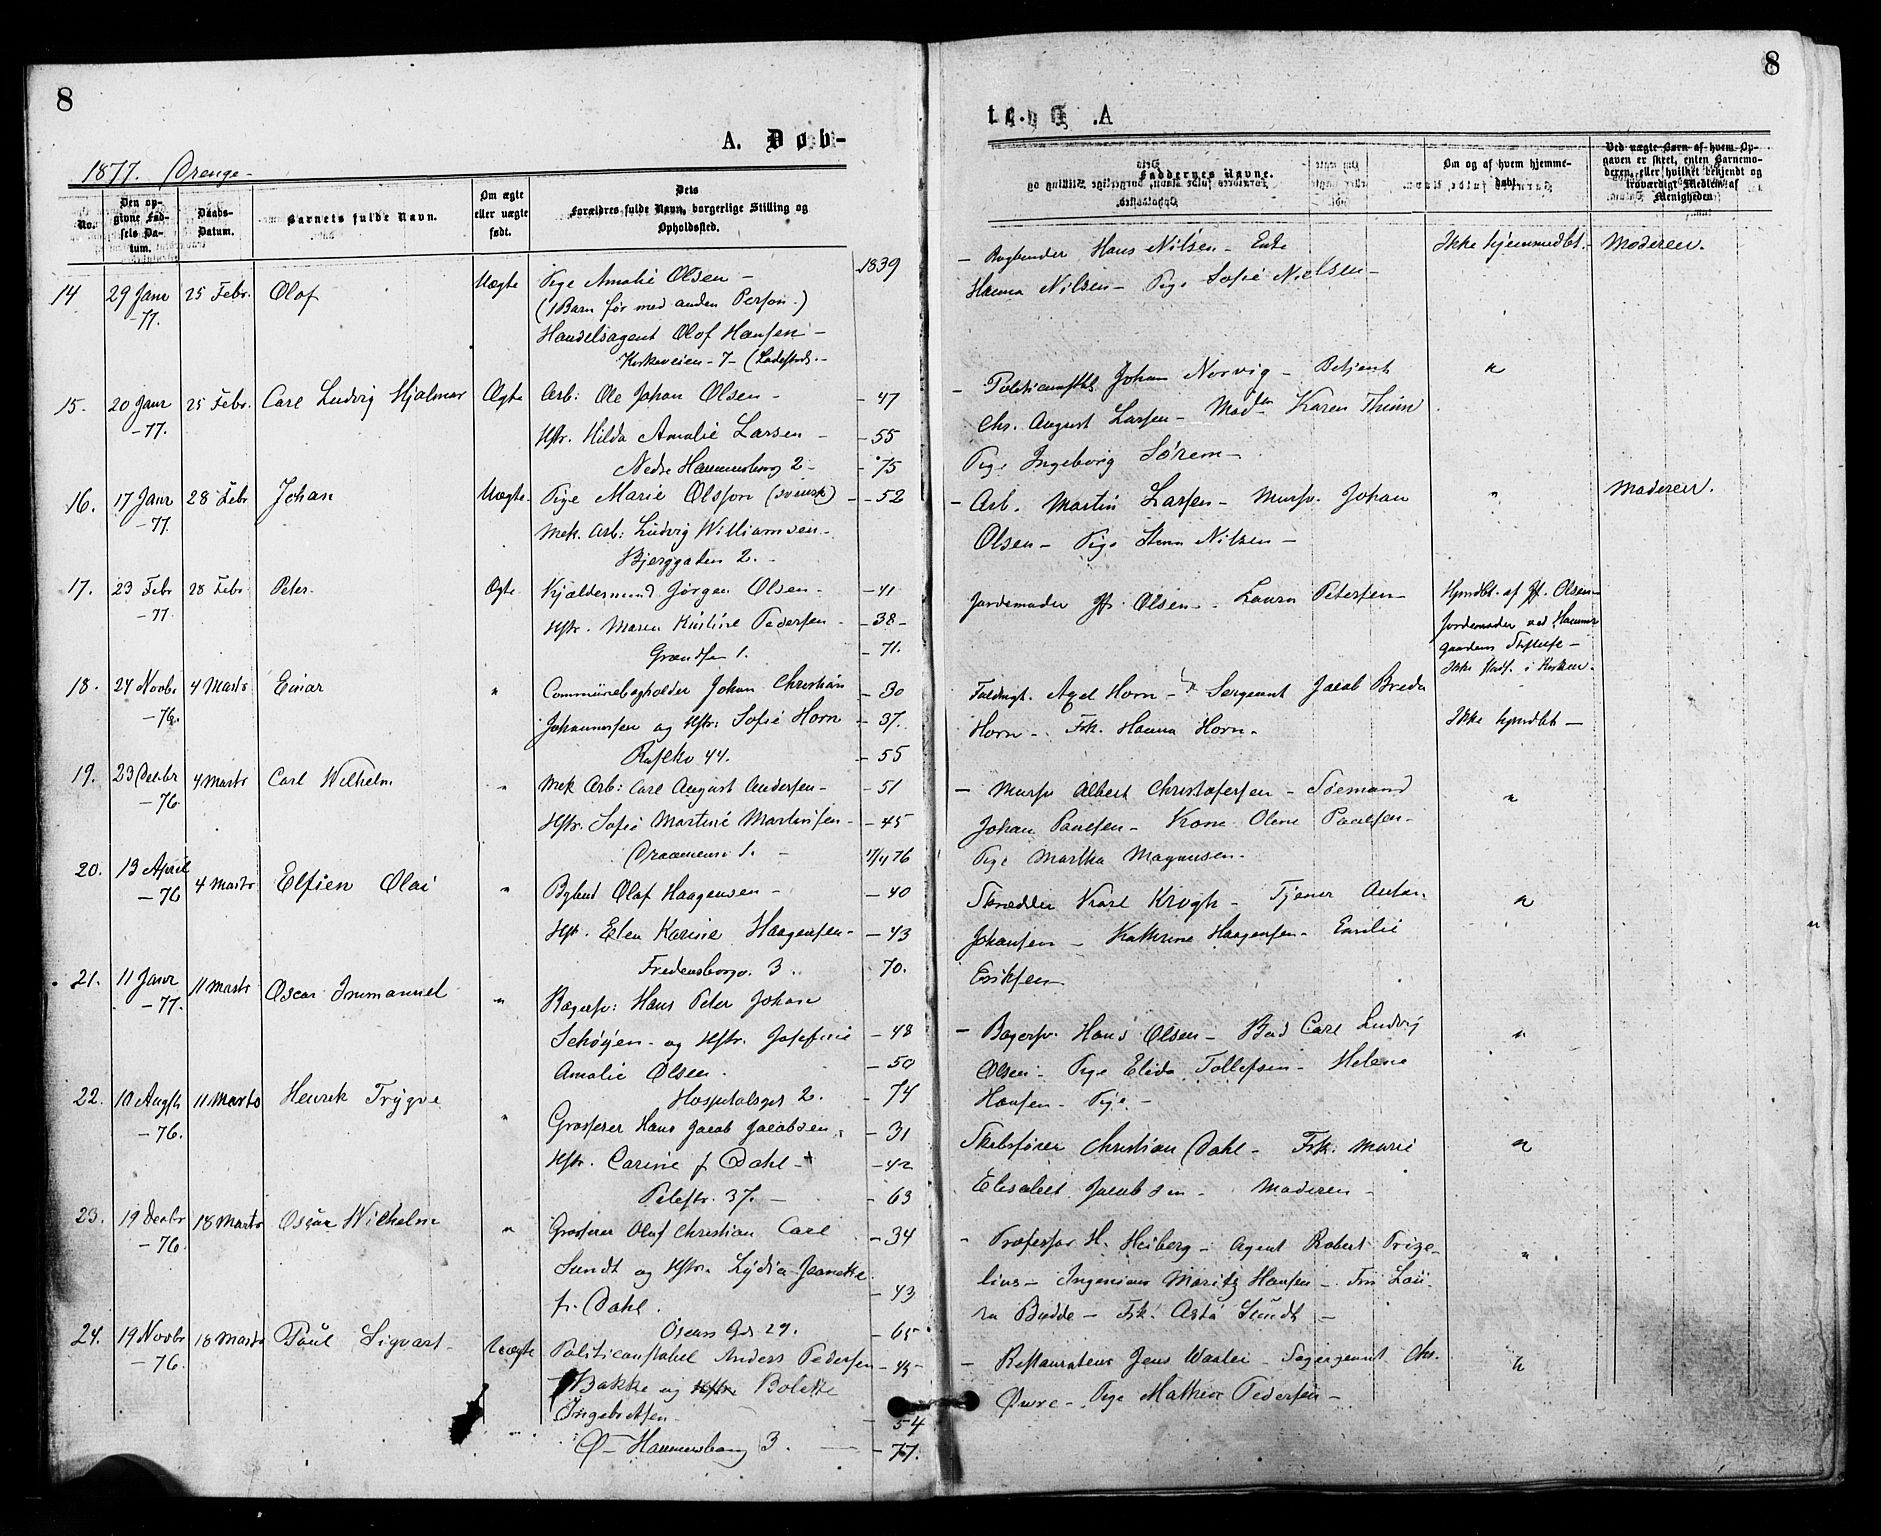 8
A. Døb-
1877. Drenge-
No.
Den opgivne Fødsels Datum.
Daabs-Datum.
Barnets fulde Navn.
Om ægte eller uægte født.
Forældres fulde Navn, borgerlige Stilling og Opholdssted.
14
29 Janr -77.
25 Febr.
Olaf
Uægte
Pige Amalie Olsen - 1839
(1 Barn før med anden Person.)
Handelsagent Olof Hansen -
Kirkeveien - 7 -
15.
20 Janr -77.
25 Febr.
Carl Ludvig Hjalmar
Ægte
Arb: Ole Johan Olsen - - 47
Hstr. Hilda Amalie Larsen - - 55
Nedre Hammersborg 2 - - 75
16.
17 Janr -77.
28 Febr
Johan
Uægte
Pige Marie Olsson (svensk) - - 52
Mek. Arb: Ludvig Williamsen -
Bjerggaden 2. -
17.
23 Febr -77.
28 Febr
Peter.
Ægte
Kjældermand Jørgen Olsen - - 41
Hstr. Maren Kristine Pedersen - - 38 -
Grændsen 1. - 71.
18.
27 Novbr -76.
4 Marts
Einar
"
Communebogholder Johan Christian - 30
Johannesen og Hstr. Sofie Horn - 37.
44. - 55
19.
23 Decbr -76
4 Marts
Carl Wilhelm
"
Mek Arb: Carl August Andersen - - 51
Hstr. Sofie Martine Martinsen - - 45
1. - 76
20.
13 April -76
4 Marts
Elfien Olai
"
Olaf Haagensen - - 40
Hstr. Elen Karine Haagensen - - 43
Fredensborgv. 3. 70.
21.
11 Janr -77.
11 Marts
Oscar Immanuel
"
Bagersv: Hans Peter Johan
Schøyen - og Hstr. Josefine - 48
Amalie Olsen. - 50
Hospitalsgd 2. - 74
22.
10 Augst -76.
11 Marts
Henrik Trygve
"
Grosserer Hans Jacob Jacobsen - 31
Hstr. Carine f Dahl - - 42
Pilestr. 37. - - 63
23.
19 Decbr -76.
18 Marts
Oscar Wilhelm
"
Grosserer Olaf Christian Carl - 34
Sundt og Hstr. Lydia Jeanette
f. Dahl. - 43
Oscars Gd. 29. - 65
24.
19 Novbr -76.
18 Marts
Paul Sigvart -
Uægte
Politiconstabel Anders Pedersen - 49 -
Bakke og Hstr Bolette
Ingebretsen - - 54
Ø - Hammersborg 3. - 77.
8
Faddernes Navne.
Om og af hvem hjemmedøbt.
Ved uægte Børn af hvem Opgaven er skeet, enten Barnemoderen, eller hvilket bekjendt og troværdigt Medlem af Menigheden
- Bogbinder Hans Nilsen - Enke
Ikke hjemmedbt. -
Moderen.
Hanna Nilsen - Pige Sofie Nielsen -
- Politiconstbl. Johan Norvig - Betjent
"
Chr. August Larsen - Mad. Karen Thune
Pige Ingeborg Sørem -
- Arb. Martin Larsen - Mursv. Johan
"
Moderen.
Olsen - Pige Nilsen -
Jordemoder Olsen - Laura Petersen -
Hjmdbt. af Olsen -
Jordemoder ved
Stiftelse -
Ikke i Kirken.
Axel Horn - Sergeant Jacob Breda
Horn - Frk. Hanna Horn -
Ikke hjmdbt -
- Mursv Albert Christofersen - Sømand
"
Johan Paulsen - Kone Oline Paulsen -
Pige Martha Magnusen -
Skrædder Karl Krogh - Tjener Anton
"
Johansen - Kathrine Haagensen - Emilie
Eriksen
- Bagersv. Hans Olsen - Bud Carl Ludvig
"
Olsen - Pige Elida Tollefsen - Helene
Hansen - Pige -
Skibsfører Christian Dahl - Frk. Marie
"
Elisabet Jacobsen - Moderen -
- Professor H. Heiberg - Agent Robert Prize-
"
lius - Ingeniør Moritz Hansen - Fru Lau-
ra Budde - Frk. Asta Sundt -
- Restauratør Jens Waaler - Chr.
"
Øwre - Pige Mathea Pedersen -